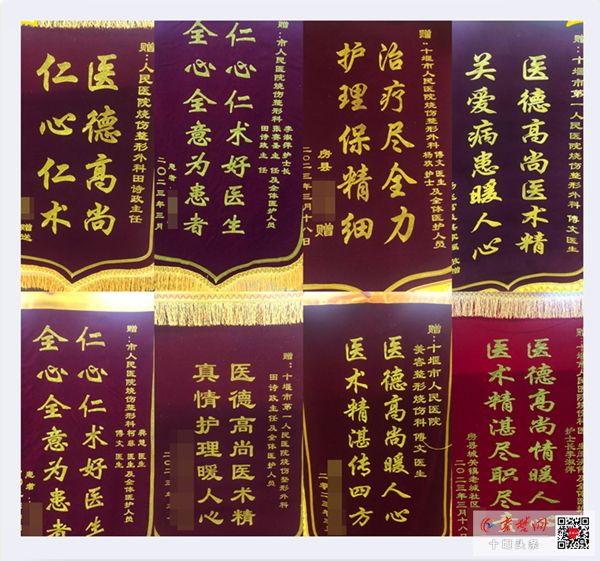 赠：人民医院烧伤整形外科田诗政主任
医德高尚
仁心仁术
赠送
赠：市人民医院烧伤整形外科
李淑萍护士长
田诗政主任
主任及全体医护人员
仁心仁术好医生
全心全意为患者
患者：
二〇二三年三月
赠：十堰市人民医院烧伤整形外科
傅文医生及全体医护人员
杨欢护士
治疗尽全力
护理保精细
房县
赠
二〇二三年三月十八日
赠：十堰市第一人民医院烧伤整形外科 傅文医生
医德高尚医术精
关爱病患暖人心
赠：市人民医院烧伤整形外科
龚慧医生
傅文医生
医生及全体医护人员
仁心仁术好医生
全心全意为患者
患者：
赠：十堰市第一人民医院烧伤整形外科
田诗政主任及全体医护人员
医德高尚医术精
真情护理暖人心
二〇二三年三
赠：十堰市人民医院
美容整形烧伤科 傅文医生
医德高尚暖人心
医术精湛传四方
赠：十堰市第一人民医院烧伤整形外科
护士长李淑萍
医德高尚情暖人
医术精湛尽职尽
房县城关镇老城社区
二〇二三年三月十八
秦楚网
十堰头条